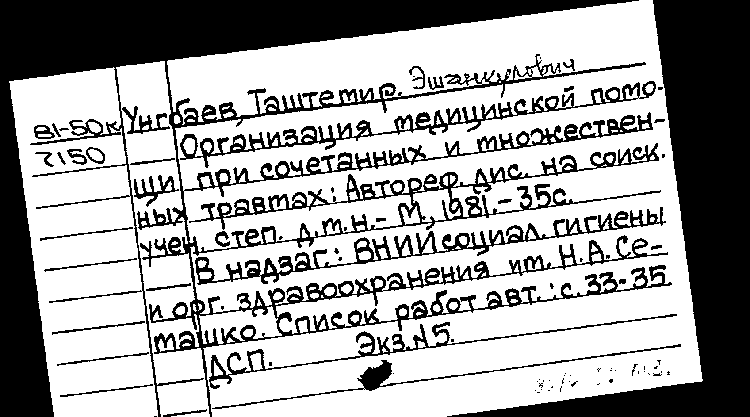 81-50к
7150
Унгбаев, Таштемир. Эшанкулович
Организация медицинской помо-
щи при сочетанных и множествен-
ных травмах: Автореф. дис. на соиск.
учен. степ. д.м.н.- М., 1981.- 35с.
В надзаг.: ВНИИ социал. гигиены
и орг. здравоохранения им. Н.А.Се-
машко. Список работ авт.: с.33-35
ДСП. Экз.№5.